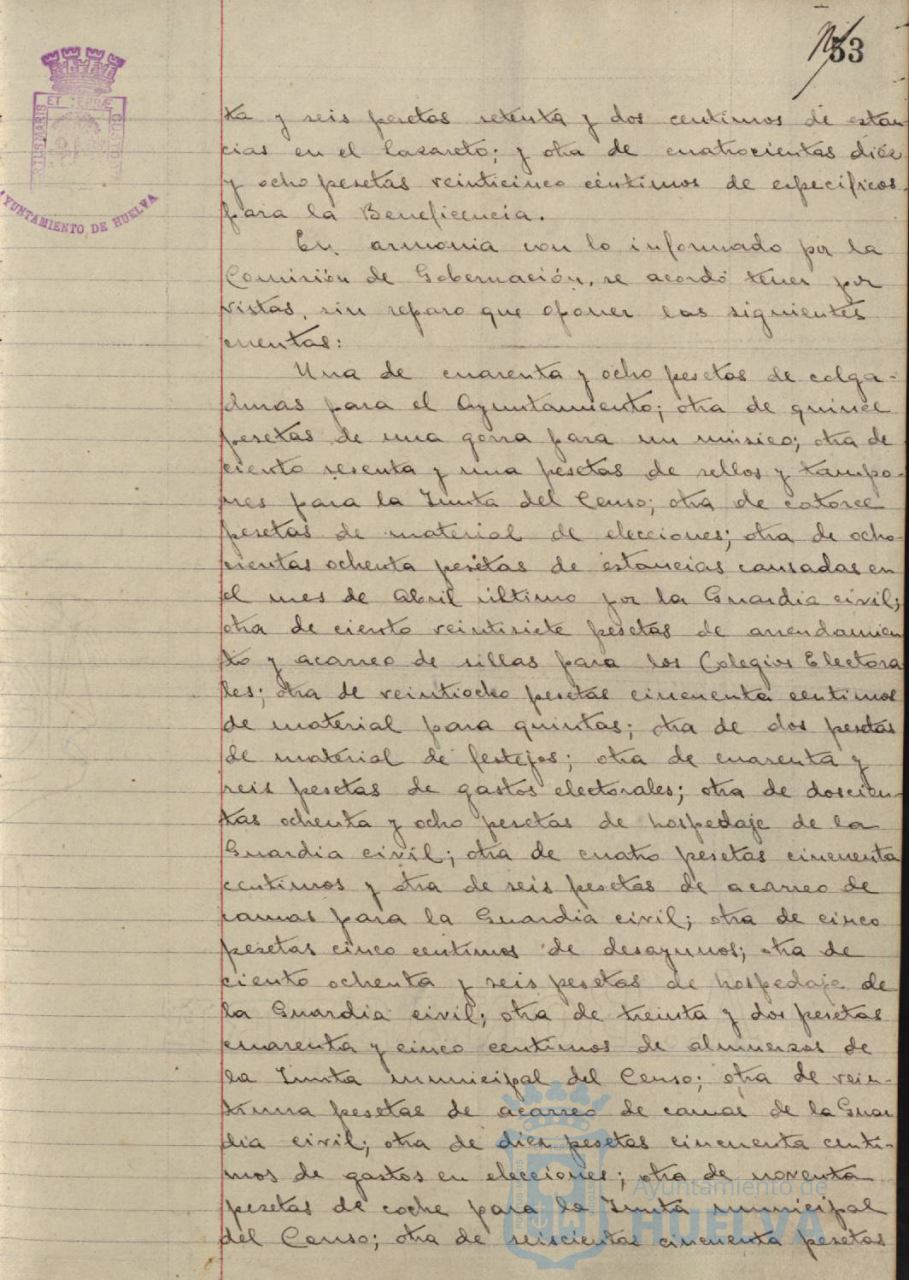 53
ta y seis pesetas setenta y dos centimos de estan-
cias en el Lazareto; y otra de cuatrocientas diez
y ocho pesetas veinticinco centimos de especificos
para la Beneficencia.
En armonia con lo informado por la
Comisión de Gobernación, se acordó tener por
vistas, sin reparo que oponer las siguientes
cuentas:
Una de cuarenta y ocho pesetas de colga-
duras para el Ayuntamiento; otra de quince
pesetas de una gorra para un músico; otra de
ciento sesenta y una pesetas de sellos y tampo-
nes para la Junta del Censo; otra de catorce
pesetas de material de elecciones; otra de ocho-
cientas ochenta pesetas de estancias causadas en
el mes de Abril último por la Guardia civil;
otra de ciento veintisiete pesetas de arrendamien-
to y acarreo de sillas para los Colegios Electora-
les; otra de veintiocho pesetas cincuenta centimos
de material para quintas; otra de dos pesetas
de material de festejos; otra de cuarenta y
seis pesetas de gastos electorales; otra de doscien-
tas ochenta y ocho pesetas de hospedaje de la
Guardia civil; otra de cuatro pesetas cincuenta
centimos y otra de seis pesetas de acarreo de
camas para la Guardia civil; otra de cinco
pesetas cinco centimos de desayunos; otra de
ciento ochenta y seis pesetas de hospedaje de
la Guardia civil; otra de treinta y dos pesetas
cuarenta y cinco centimos de almuerzos de
la Junta municipal del Censo; otra de vein-
tiuna pesetas de acarreo de camas de la Guar
dia civil; otra de diez pesetas cincuenta centi-
mos de gastos en elecciones; otra de noventa
pesetas de coche para la Junta municipal
del Censo; otra de seiscientas cincuenta pesetas
AYUNTAMIENTO DE HUELVA
Ayuntamiento de
HUELVA